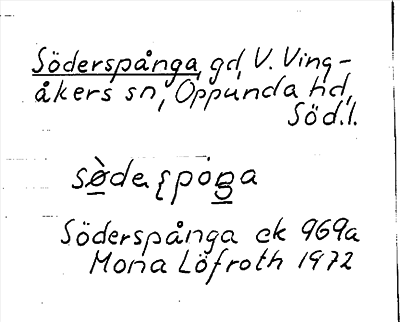 Söderspånga, gd, V. Ving-
åkers sn, Oppunda hd,
Söd.l.
Söderspånga ek 969a
Mona Löfroth 1972